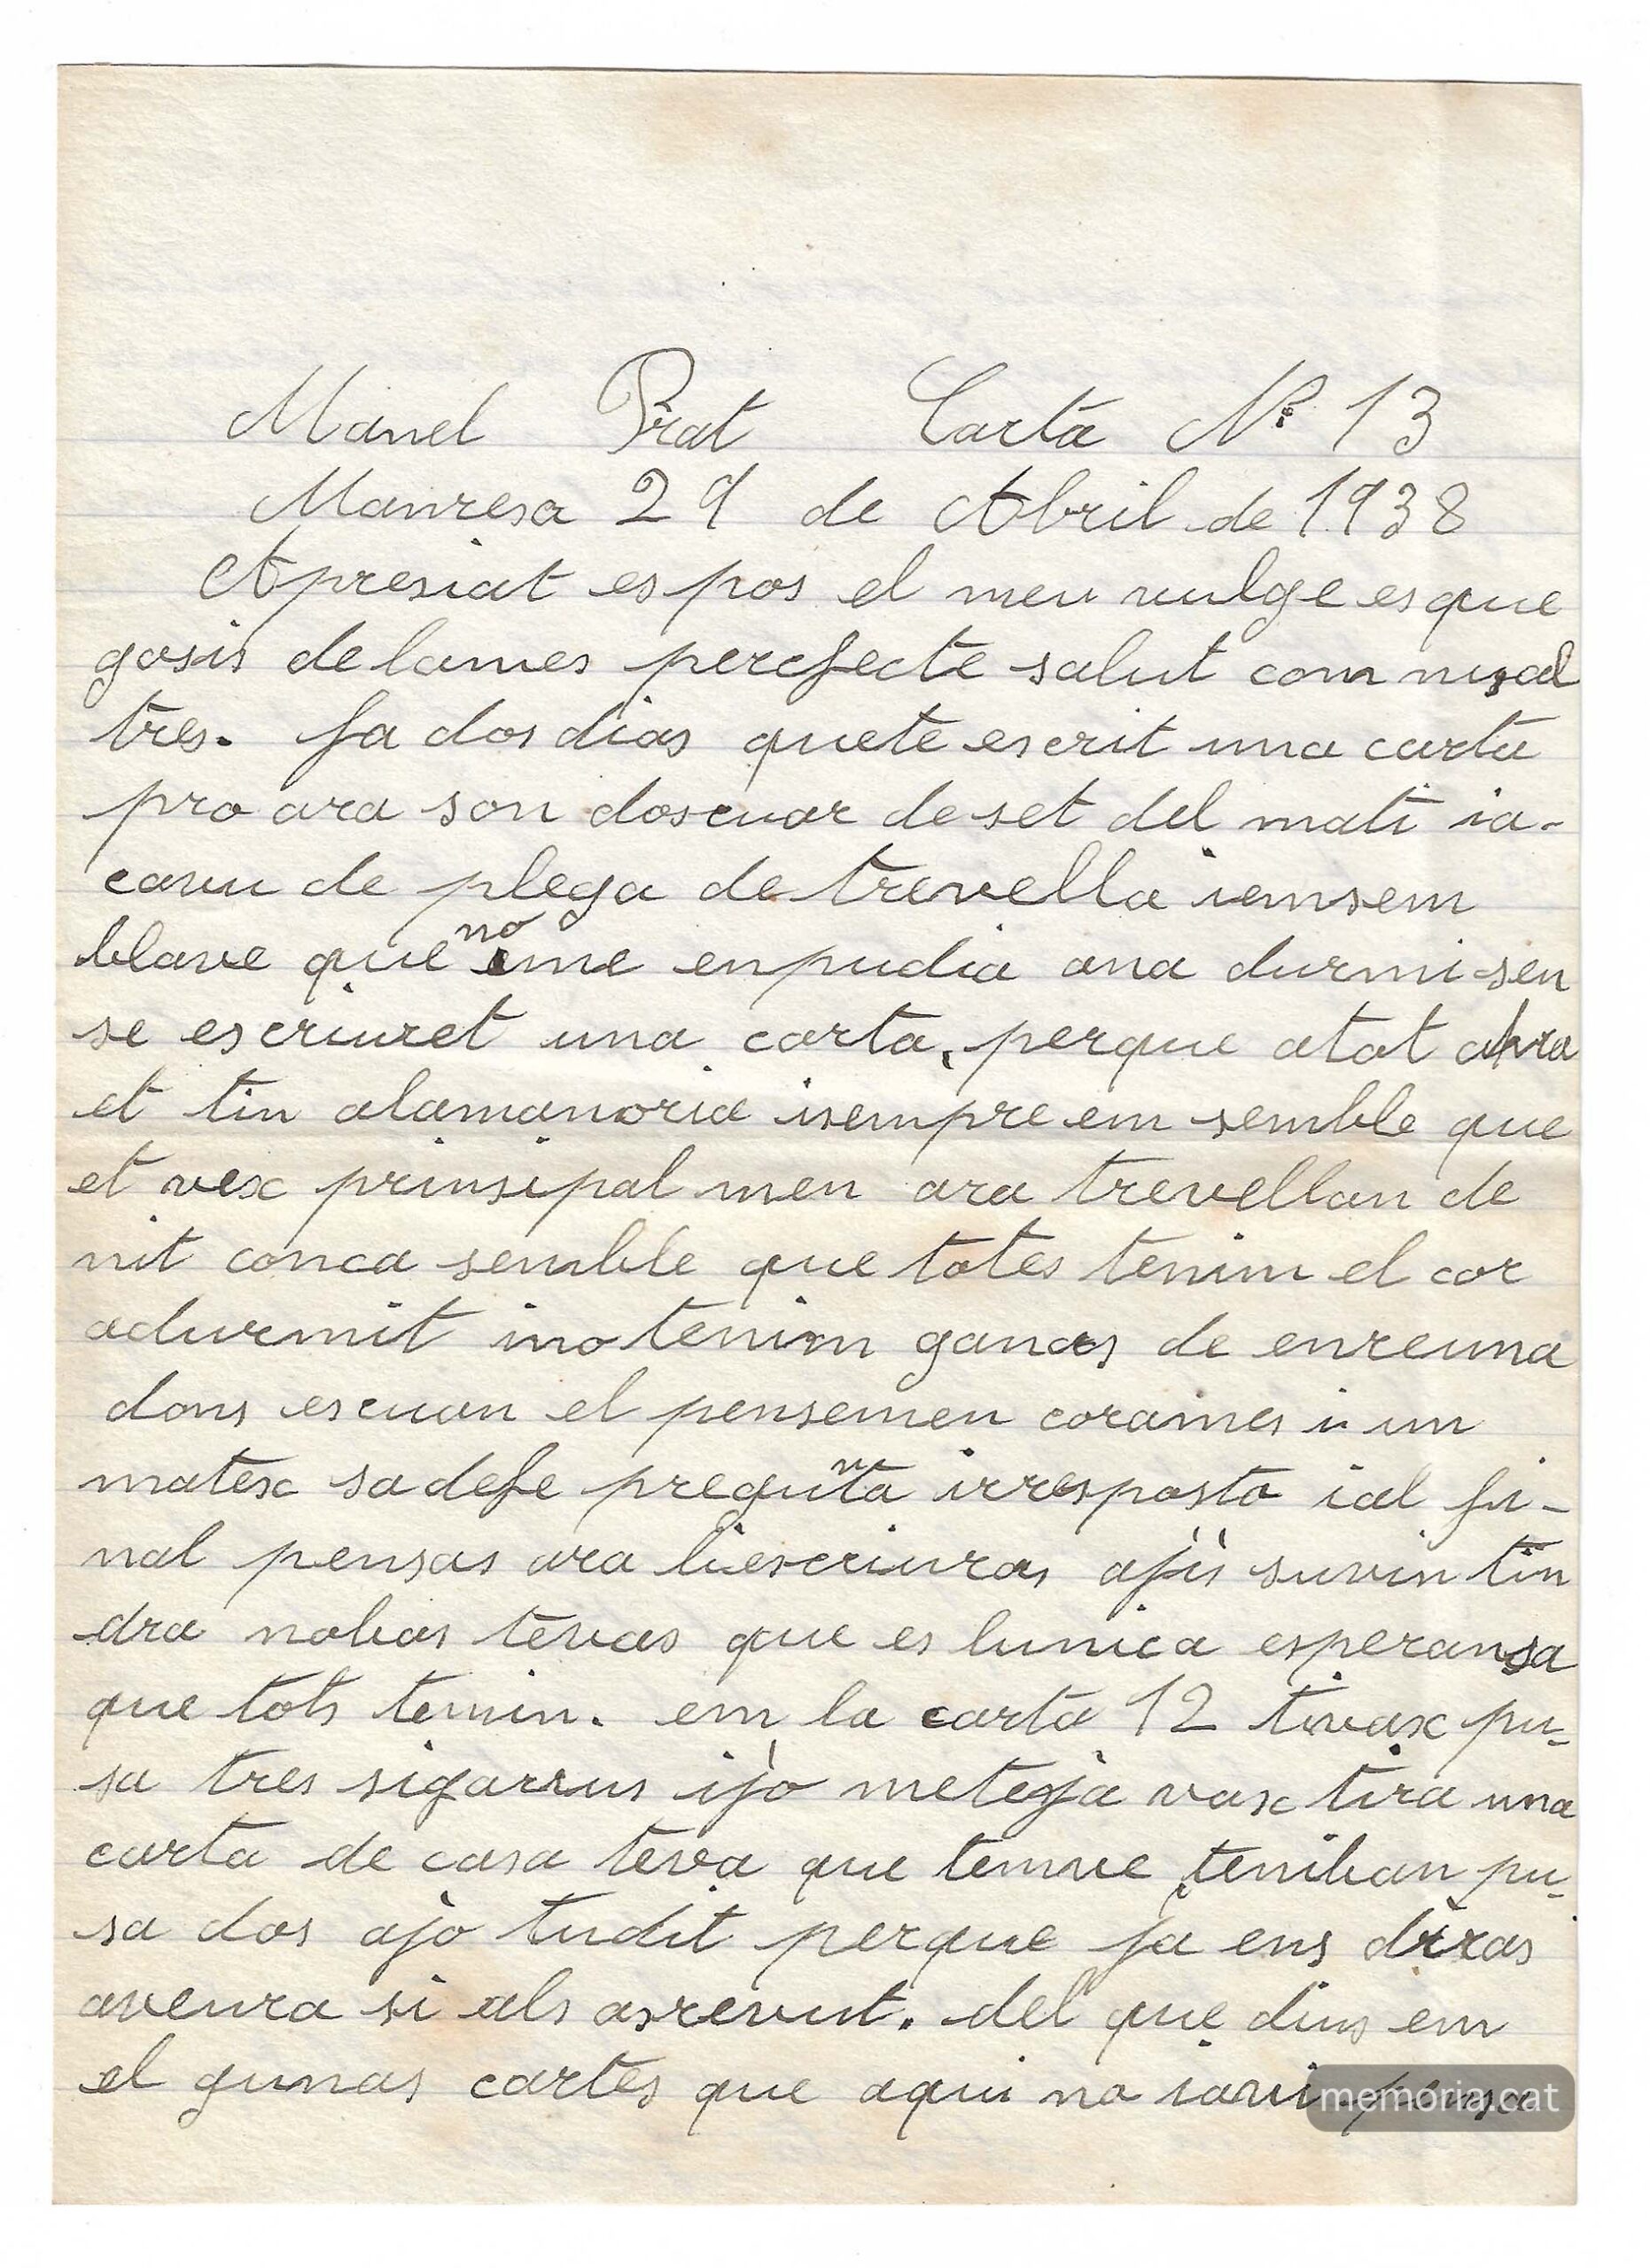 Manel Prat Carta Nº 13
Manresa 29 de Abril de 1938
Apresiat espos el meu vulge esque
gosis de lames perfecte salut com nusal
tres. fa dos dias quete escrit una carta
pro ara son doscuar de set del mati ia-
cavu de plega de trevella iemsem
blave que no me enpudia ana durmi sen
se escriuret una carta, perque atot ahra
et tin alamanoria isempre em semble que
et vex prinsipal men ara trevellan de
nit conca semble que totes tenim el cor
adurmit ino tenim ganas de enreuna
dons escuan el pensemen corames i un
matex sa defe pregunta irresposta ial fi-
nal pensas ara liescriuras ajis suvin tin
dra nobas tevas que es lunica esperansa
que tots tenin. em la carta 12 tivax pu-
sa tres sigarrus ijo metexja vax tira una
carta de casa teva que temve teniban pu-
sa dos ajo tudit perque ja ens diras
aveura si als asrevut. del que dius em
el gunas cartes que aqui no iavi pensa
memoria.cat